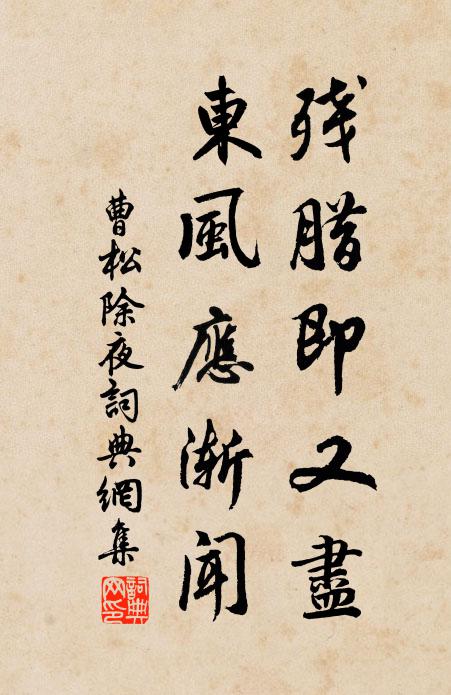 残腊即又盡
東風應漸聞
曹松除夜詞典網集
詞典網印